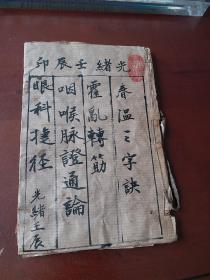 光緒壬辰卯
春温三字訣
霍亂轉筋
咽喉脉證通論
眼科捷径
光緒壬辰